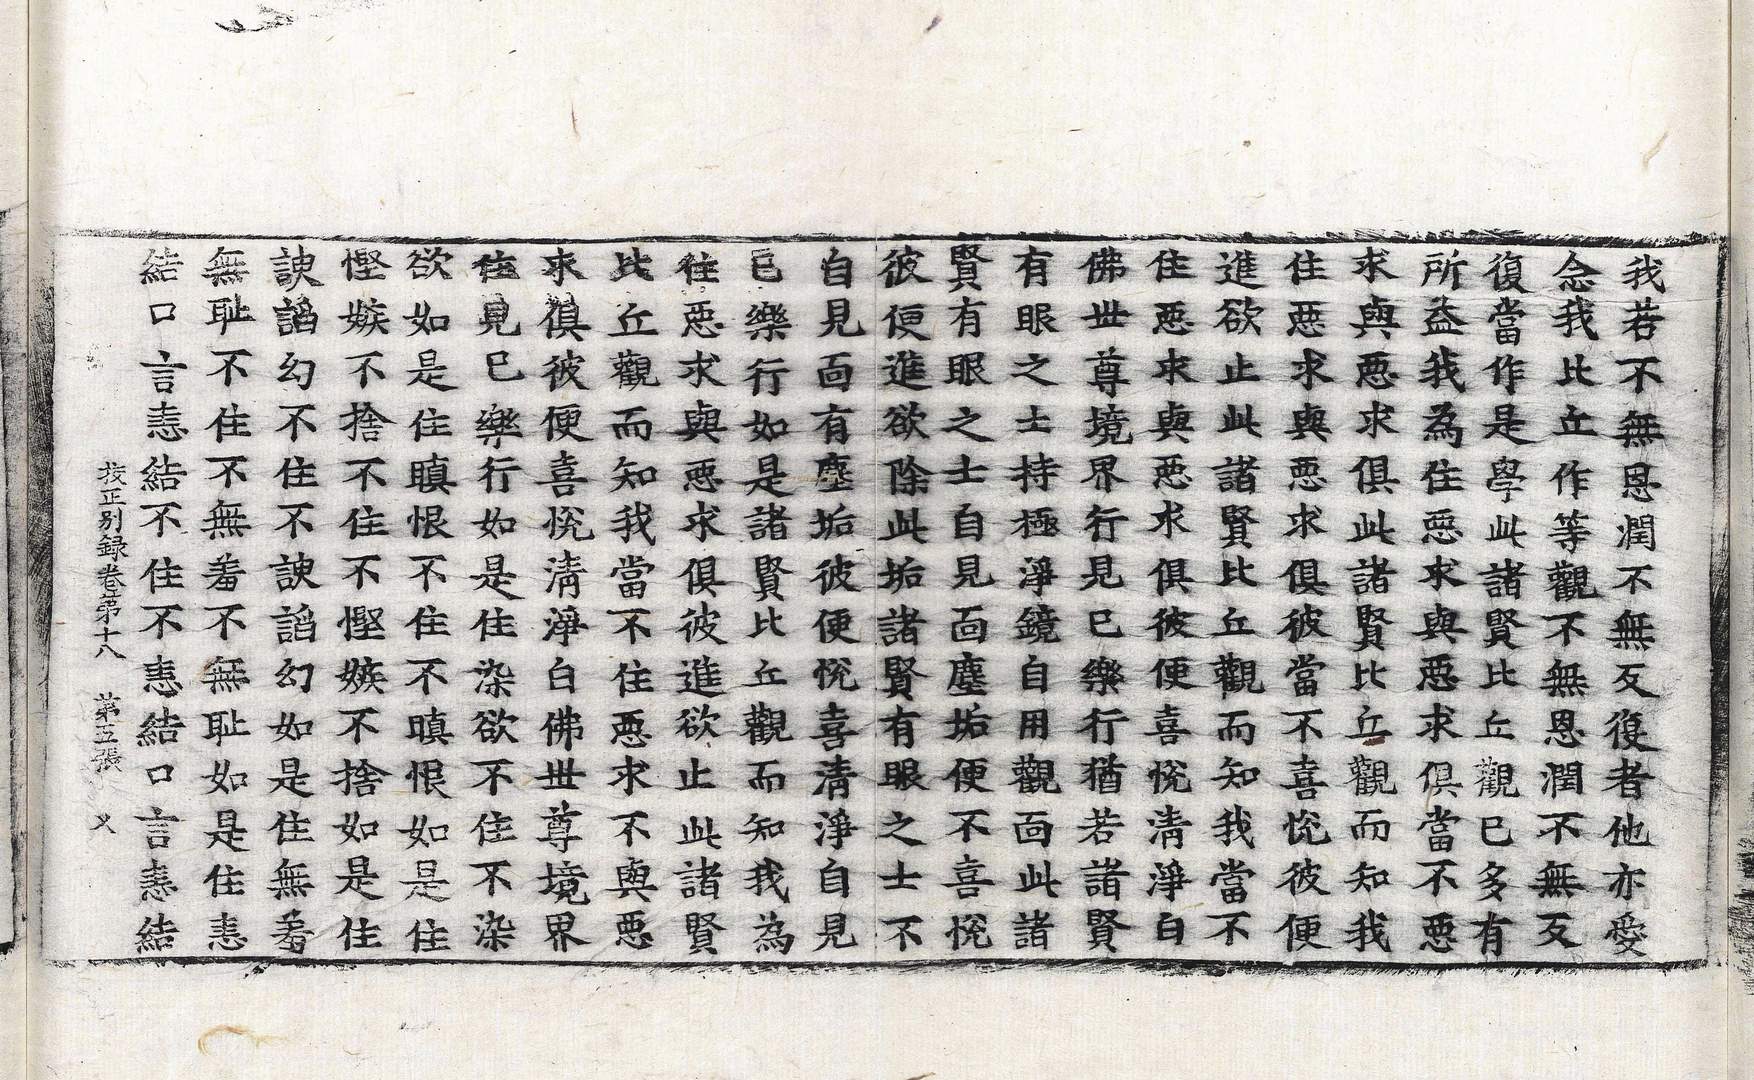 我若不無恩潤不無反復者他亦愛
念我比丘作等觀不無恩潤不無反
復當作是學此諸賢比丘觀已多有
所益我為住惡求與惡求俱當不惡
求與惡求俱此諸賢比丘觀而知我
住惡求與惡求俱彼當不喜悅彼便
進欲止此諸賢比丘觀而知我當不
住惡求與惡求俱彼便喜悅清淨白
佛世尊境界行見已樂行猶若諸賢
有眼之士持極淨鏡自用觀面此諸
賢有眼之士自見面塵垢便不喜悅
彼便進欲除此垢諸賢有眼之士不
自見面有塵垢彼便悅喜清淨自見
已樂行如是諸賢比丘觀而知我為
住惡求與惡求俱彼進欲止此諸賢
比丘觀而知我當不住惡求不與惡
求俱彼便喜悅清淨白佛世尊境界
住見已樂行如是住染欲不住不染
欲如是住瞋恨不住不瞋恨如是住
慳嫉不捨不住不慳嫉不捨如是住
諛諂幻不住不諛諂幻如是住無羞
無恥不住不無羞不無恥如是住恚
結口言恚結不住不恚結口言恚結
挍正別録卷第十八 第五張 㐅